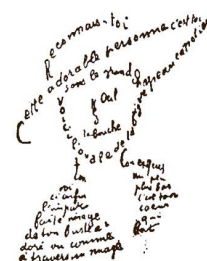 Reconnais-toi
Cette adorable personne c'est toi
Sous le grand chapeau canotier
Oeil
Nez
La bouche
Voici l'ovale de ta figure
Ton cou exquis
Voici
enfin
l'imparfaite image
de ton buste
adoré vu comme
à travers un nuage
Un peu
plus bas
c'est ton
coeur
qui
bat